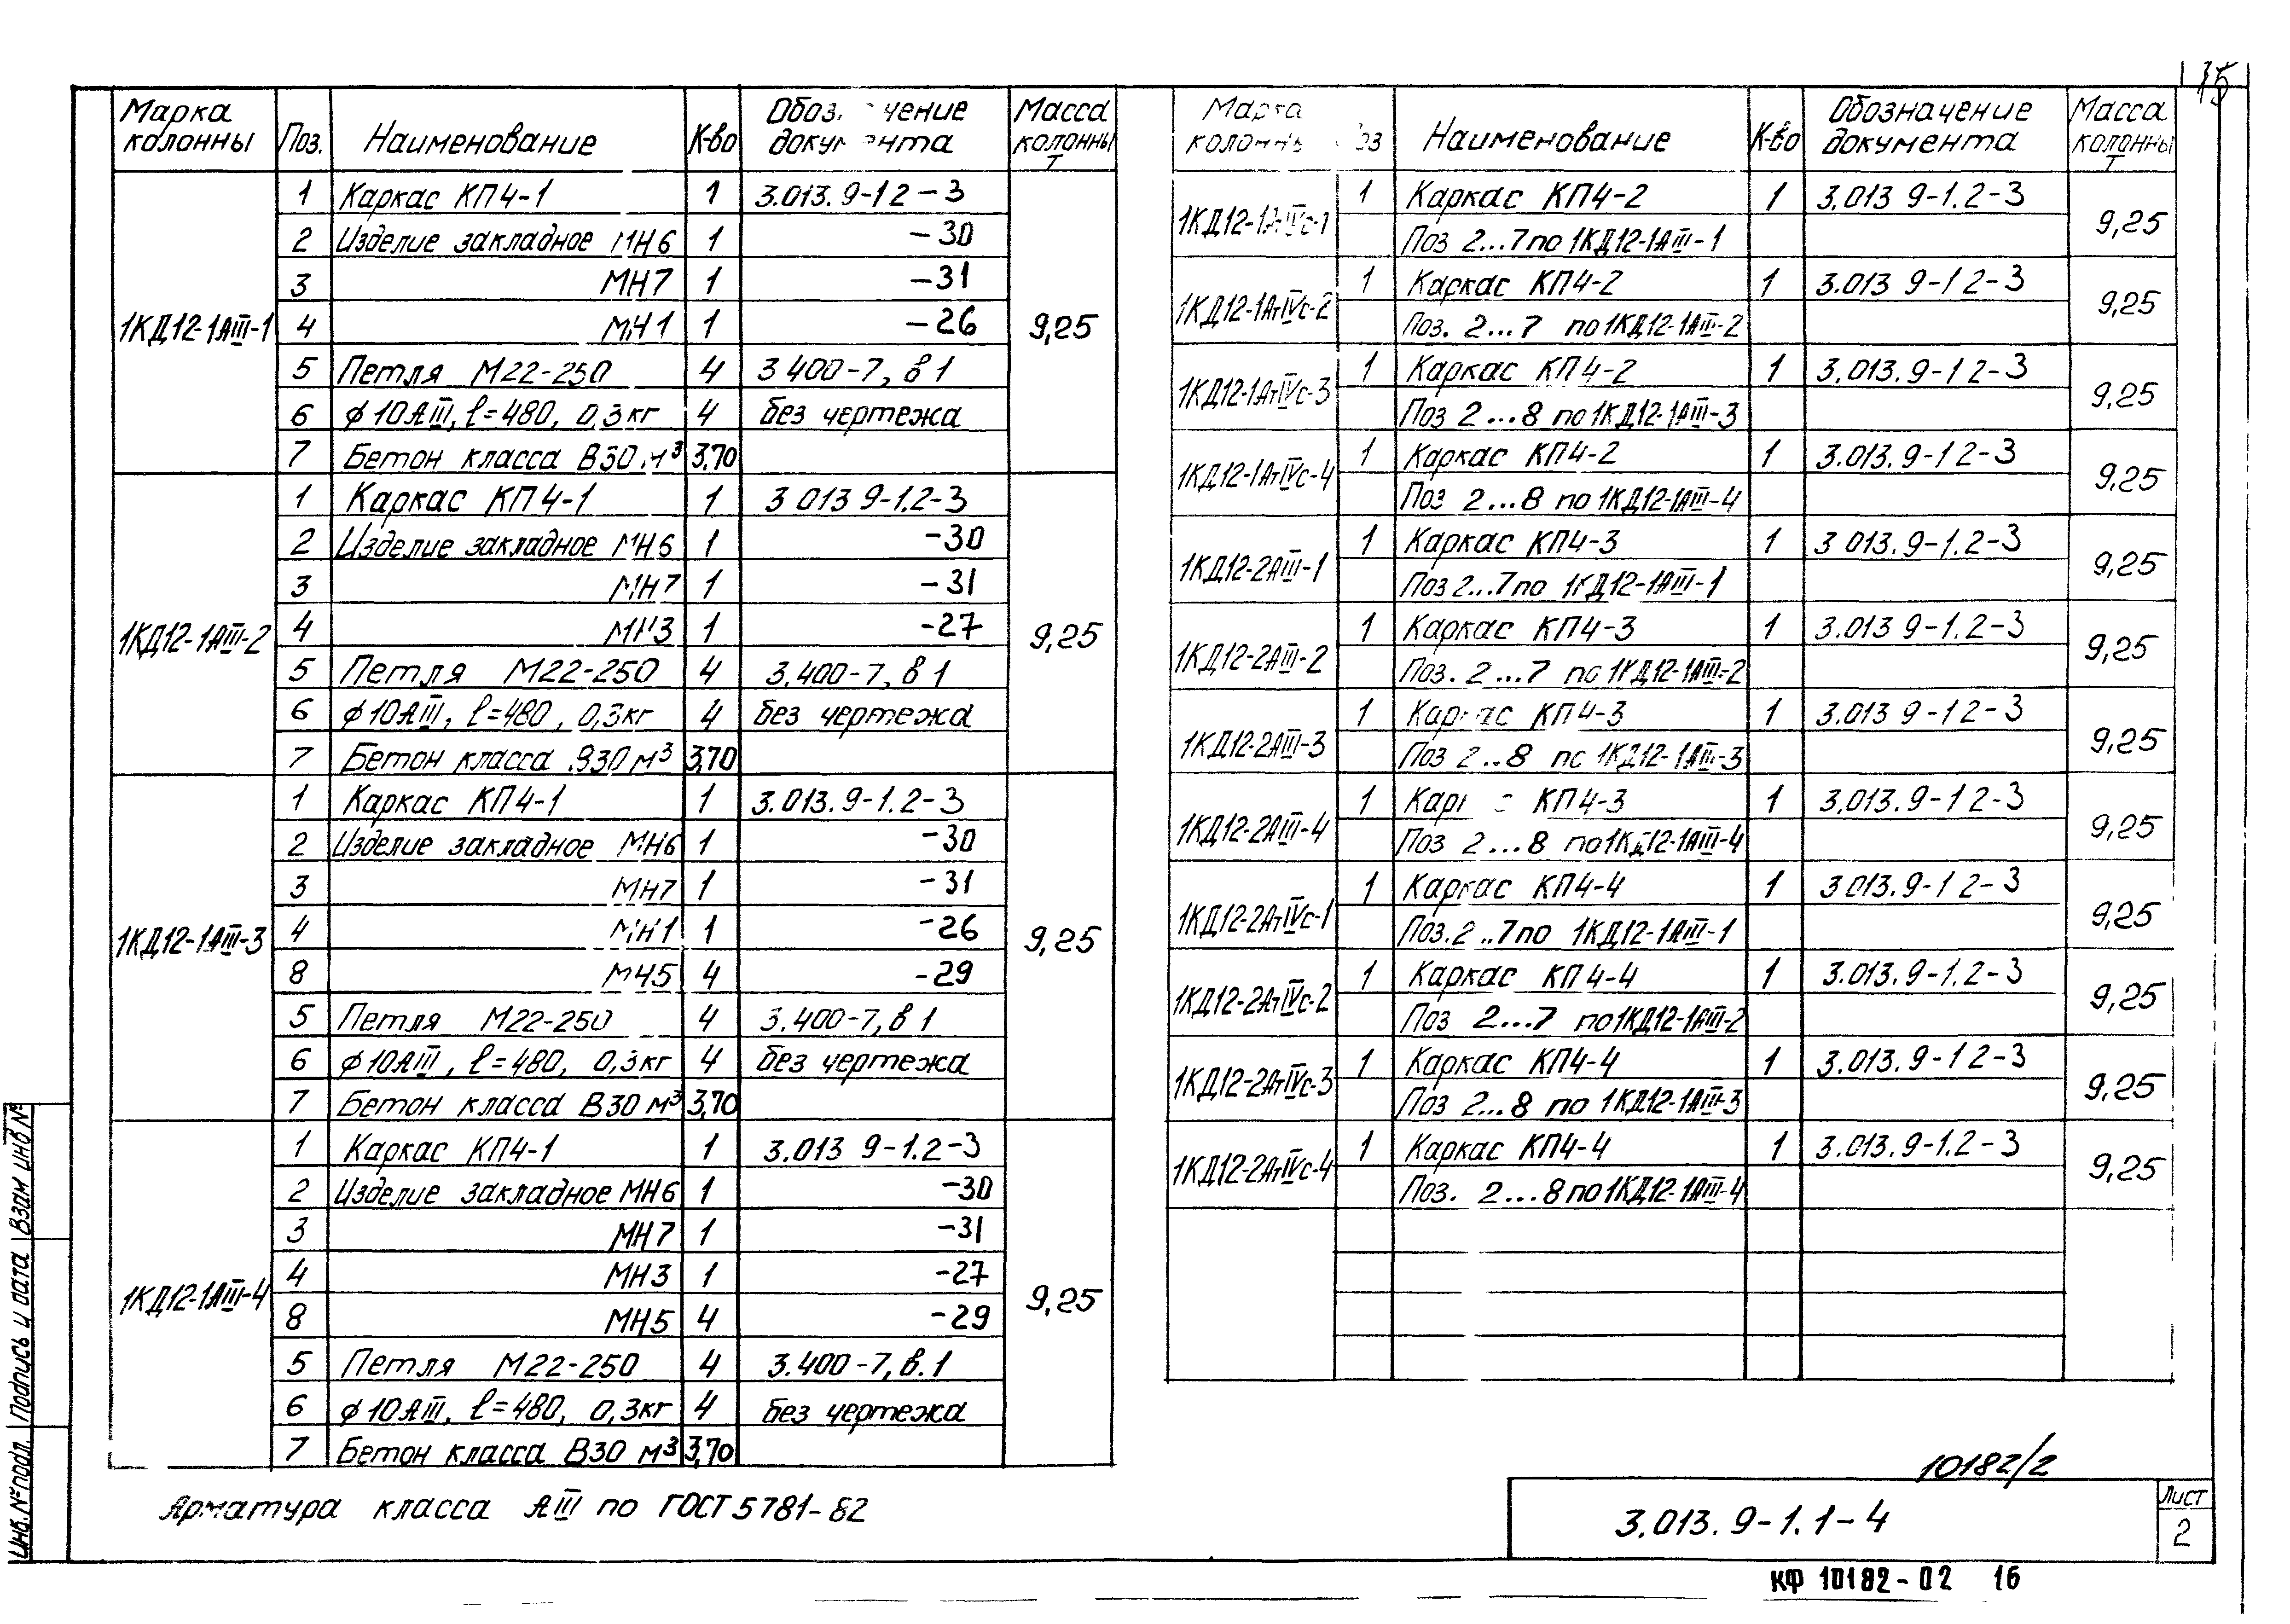 15
Марка колонны Поз. Наименование К-во Обозначение документа Масса колонны Т
1КД12-1АIII-1
1 Каркас КП4-1 1 3.013.9-1 2-3 9,25
2 Изделие закладное МН6 1 -30
3 МН7 1 -31
4 МН1 1 -26
5 Петля М22-250 4 3 400-7, в 1
6 ϕ10АIII, ℓ=480, 0,3кг 4 без чертежа
7 Бетон класса В30 м³ 3,70
1КД12-1АIII-2
1 Каркас КП4-1 1 3 013 9-1.2-3 9,25
2 Изделие закладное МН6 1 -30
3 МН7 1 -31
4 МН3 1 -27
5 Петля М22-250 4 3.400-7, в 1
6 ϕ10АIII, ℓ=480, 0,3кг 4 без чертежа
7 Бетон класса В30 м³ 3,70
1КД12-1АIII-3
1 Каркас КП4-1 1 3.013.9-1.2-3 9,25
2 Изделие закладное МН6 1 -30
3 МН7 1 -31
4 МН1 1 -26
8 МН5 4 -29
5 Петля М22-250 4 3.400-7, в 1
6 ϕ10АIII, ℓ=480, 0,3кг 4 без чертежа
7 Бетон класса В30 м³ 3,70
1КД12-1АIII-4
1 Каркас КП4-1 1 3.013 9-1.2-3 9,25
2 Изделие закладное МН6 1 -30
3 МН7 1 -31
4 МН3 1 -27
8 МН5 4 -29
5 Петля М22-250 4 3.400-7, в.1
6 ϕ10АIII, ℓ=480, 0,3кг 4 без чертежа
7 Бетон класса В30 м³ 3,70
Марка колонны Поз Наименование К-во Обозначение документа Масса колонны Т
1КД12-1АтIVс-1 1 Каркас КП4-2 1 3.013 9-1.2-3 9,25
Поз 2...7 по 1КД12-1АIII-1
1КД12-1АтIVс-2 1 Каркас КП4-2 1 3.013 9-1 2-3 9,25
Поз. 2...7 по 1КД12-1АIII-2
1КД12-1АтIVс-3 1 Каркас КП4-2 1 3.013.9-1 2-3 9,25
Поз 2...8 по 1КД12-1АIII-3
1КД12-1АтIVс-4 1 Каркас КП4-2 1 3.013.9-1 2-3 9,25
Поз 2...8 по 1КД12-1АIII-4
1КД12-2АIII-1 1 Каркас КП4-3 1 3 013.9-1.2-3 9,25
Поз 2...7 по 1КД12-1АIII-1
1КД12-2АIII-2 1 Каркас КП4-3 1 3.013 9-1.2-3 9,25
Поз. 2...7 по 1КД12-1АIII-2
1КД12-2АIII-3 1 Каркас КП4-3 1 3.013 9-1 2-3 9,25
Поз 2...8 по 1КД12-1АIII-3
1КД12-2АIII-4 1 Каркас КП4-3 1 3.013.9-1 2-3 9,25
Поз 2...8 по 1КД12-1АIII-4
1КД12-2АтIVс-1 1 Каркас КП4-4 1 3 013.9-1 2-3 9,25
Поз.2...7 по 1КД12-1АIII-1
1КД12-2АтIVс-2 1 Каркас КП4-4 1 3.013.9-1.2-3 9,25
Поз 2...7 по 1КД12-1АIII-2
1КД12-2АтIVс-3 1 Каркас КП4-4 1 3.013.9-1 2-3 9,25
Поз 2...8 по 1КД12-1АIII-3
1КД12-2АтIVс-4 1 Каркас КП4-4 1 3.013.9-1.2-3 9,25
Поз. 2...8 по 1КД12-1АIII-4
Арматура класса АIII по ГОСТ 5781-82
10182/2
3.013.9-1.1-4
Лист
2
КФ 10182-02 16
Инв. № подл. Подпись и дата Взам инв №